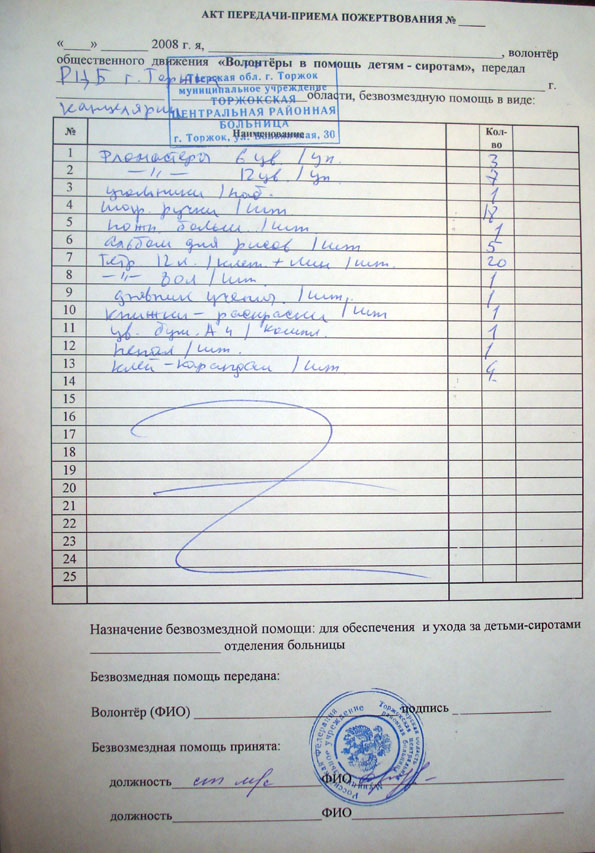 АКТ ПЕРЕДАЧИ-ПРИЕМА ПОЖЕРТВОВАНИЯ № ____
«____» _______ 2008 г. я, ______________________, волонтёр
общественного движения «Волонтёры в помощь детям - сиротам», передал
РЦБ г. Торжка г.
области, безвозмездную помощь в виде:
канцлярии
Тверская обл. г. Торжок
муниципальное учреждение
ТОРЖОКСКАЯ
ЦЕНТРАЛЬНАЯ РАЙОННАЯ
БОЛЬНИЦА
г. Торжок, ул. 36
№ Наименование Кол-во
1 Фломастеры 6 цв. /уп. 3
2 —"— 12 цв. /уп. 7
3 угольники /наб. 1
4 шар. ручки /шт 18
5 больш. /шт 1
6 альбом для рисов /шт 5
7 Тетр. 12 л. /клет. + лин /шт. 20
8 —"— /шт 1
9 дневник /шт. 1
10 книжки - раскраски /шт 1
11 цв. бум. А4 / компл. 1
12 пенал /шт. 1
13 клей-карандаш /шт 4
14
15
16
17
18
19
20
21
22
23
24
25
Назначение безвозмездной помощи: для обеспечения и ухода за детьми-сиротами
____________________ отделения больницы
Безвозмедная помощь передана:
Волонтёр (ФИО) ______________________ подпись ______________
Безвозмездная помощь принята:
должность ст м/с ФИО
должность______________________ФИО______________________
Российская Федерация